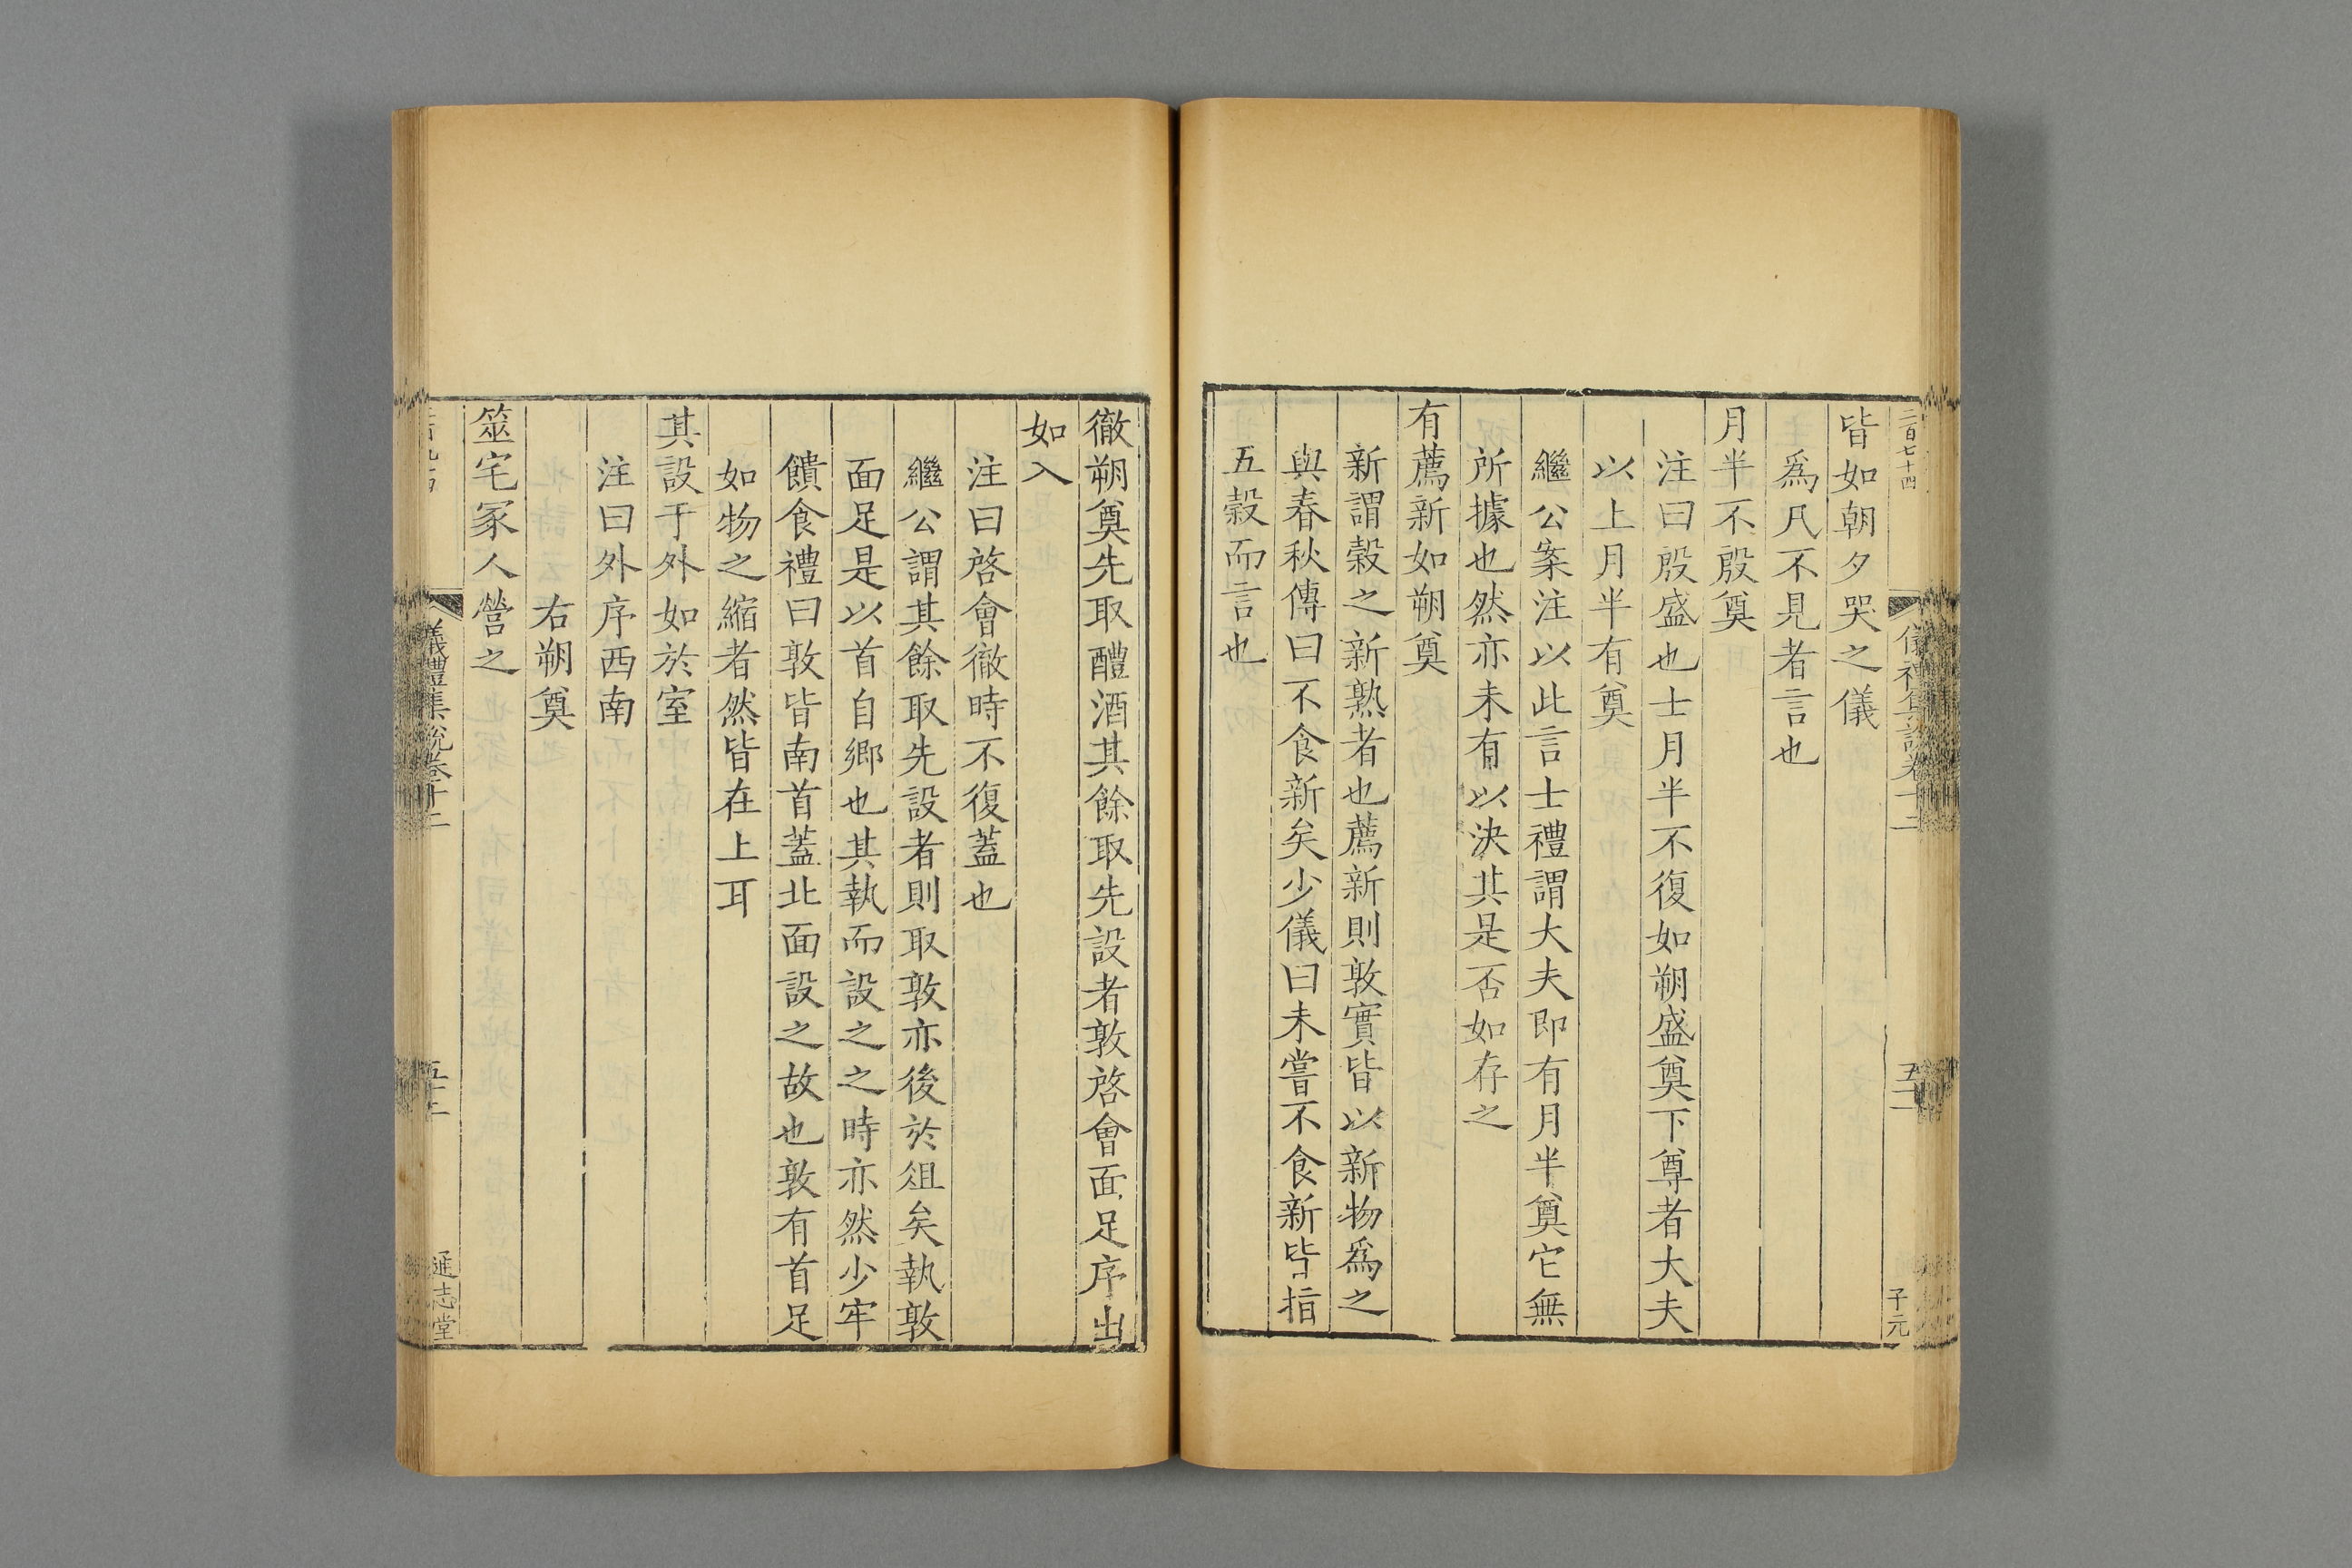 二百七十四
儀禮集說卷十二
五十二
子元
皆如朝夕哭之儀
爲凡不見者言也
月半不殷奠
注曰殷盛也士月半不復如朔盛奠下尊者大夫
以上月半有奠
繼公案注以此言士禮謂大夫即有月半奠它無
所據也然亦未有以決其是否如存之
有薦新如朔奠
新謂穀之新熟者也薦新則敦實皆以新物爲之
與春秋傳曰不食新矣少儀曰未嘗不食新皆指
五穀而言也
徹朔奠先取醴酒其餘取先設者敦啓會面足序出
如入
注曰啓會徹時不復蓋也
繼公謂其餘取先設者則取敦亦後於俎矣執敦
面足是以首自鄉也其執而設之之時亦然少牢
饋食禮曰敦皆南首蓋北面設之故也敦有首足
如物之縮者然皆在上耳
其設于外如於室
注曰外序西南
右朔奠
筮宅冢人營之
儀禮集說卷十二
通志堂